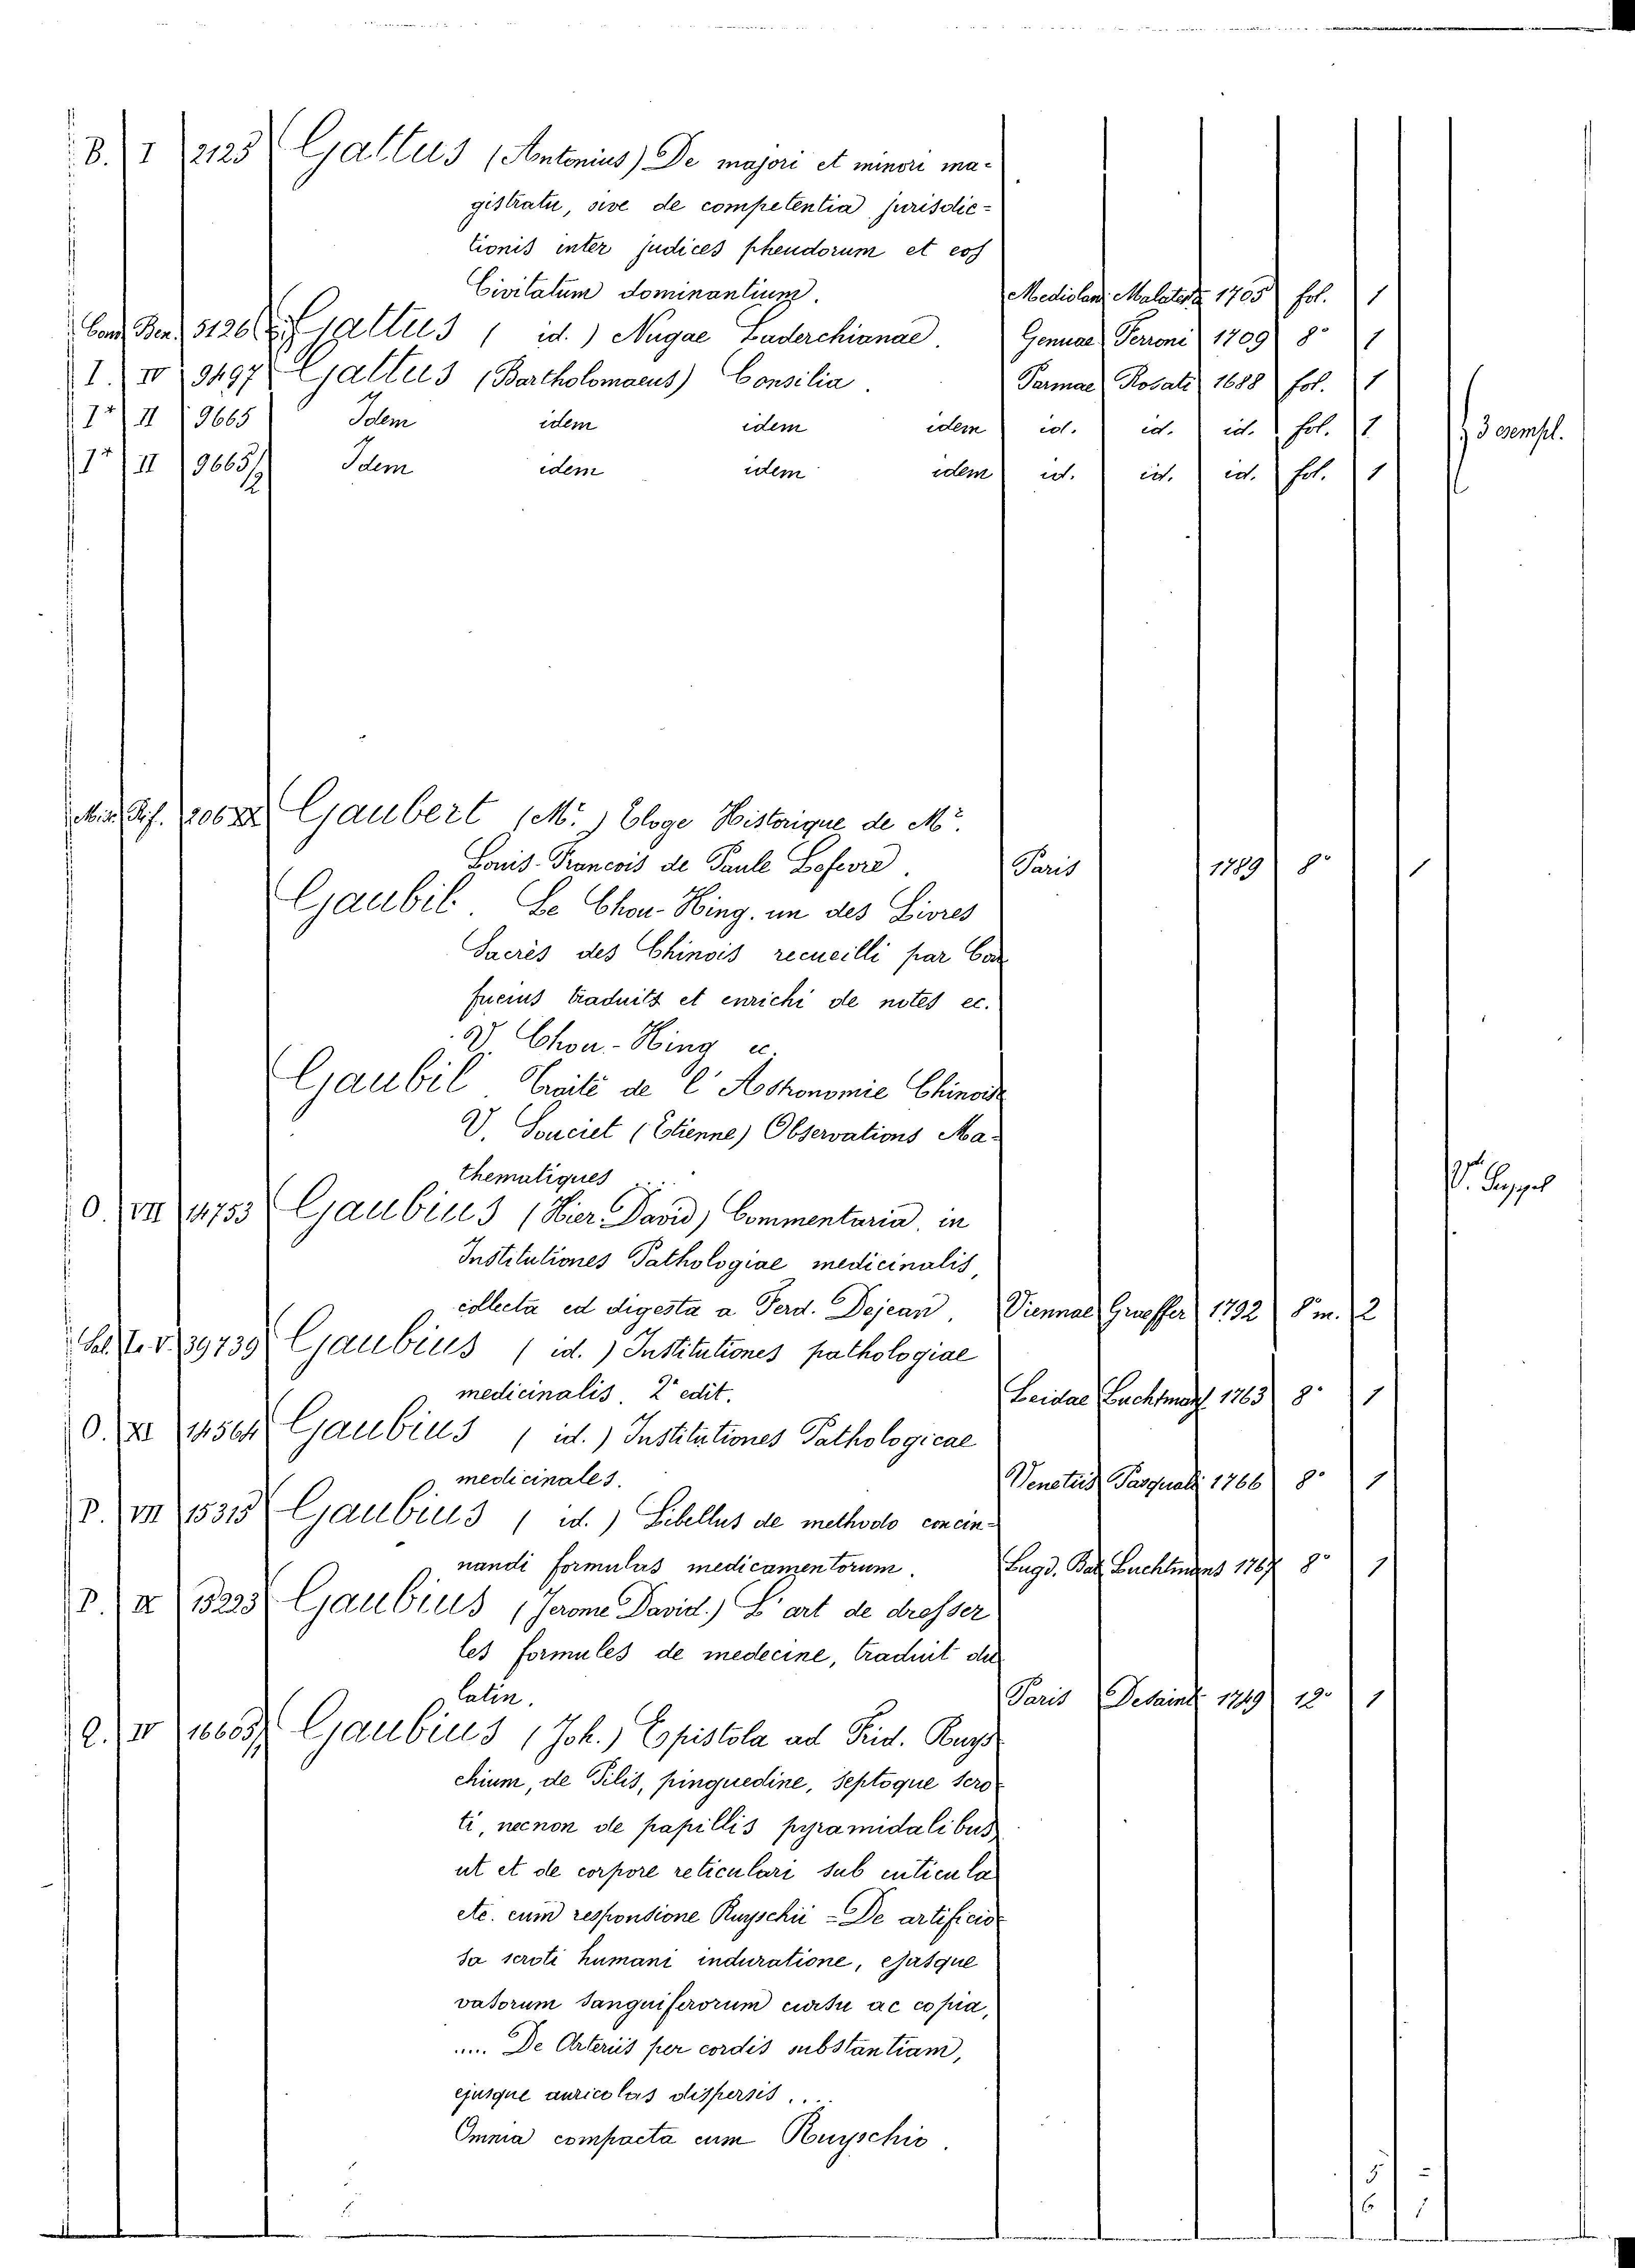 B. I 2125 Gattus (Antonius) De majori et minori ma-
gistratu, sive de competentia jurisdic-
tionis inter judices pheudorum et eos
Civitatum dominantium. Mediolani Malatesta 1705 fol. 1
Ben. 5126 Gattus ( id. ) Nugae Laderchianae. Genuae Perroni 1709 8° 1
I. IV 9497 Gattus (Bartholomaeus) Consilia. Parmae Rosati 1688 fol. 1
I* II 9665 Idem idem idem idem id. id. id. fol. 1 3 esempl.
I* II 9665/2 Idem idem idem idem id. id. id. fol. 1
Gaubert (Mr.) Eloge Historique de Mr.
Louis-Francois de Paule Lefevre. Paris 1789 8° 1
Gaubil. Le Chou-King. un des Livres
Sacrès des Chinois recueilli par Con
fucius traduits et enrichi de notes ec.
V. Chou-King ec.
Gaubil. Traité de l'Astronomie Chinoise
V. Souciet (Etienne) Observations Ma-
thematiques ...
O. VII 14753 Gaubius (Hier. David) Commentaria in
Institutiones Pathologiae medicinalis,
collecta ed digesta a Ferd. Dejean. Viennae Graeffer 1792 8° m. 2
V. 39739 Gaubius ( id. ) Institutiones pathologiae
medicinalis. 2° edit. Leidae Luchtmans 1763 8° 1
O. XI 14564 Gaubius ( id. ) Institutiones Pathologicae
medicinales. Venetiis Pasquali 1766 8° 1
P. VII 15315 Gaubius ( id. ) Libellus de methodo concin-
nandi formulas medicamentorum. Lugd. Bat. Luchtmans 1767 8° 1
P. IX 15223 Gaubius (Jerome David.) L'art de dresser
les formules de medecine, traduit du
latin. Paris Desaint 1749 12° 1
Q. IV 16605/ Gaubius (Joh.) Epistola ad Frid. Ruys
chium, de Pilis, pinguedine, Septoque Scro
ti, necnon de papillis pyramidalibus,
ut et de corpore reticulari sub cuticula
etc. cum responsione Ruyschii = De artificio
sa scroti humani induratione, ejusque
vasorum sanguiferorum cursu ac copia,
.... De Arteriis per cordis substantiam,
ejusque auricolas dispersis ....
Omnia compacta cum Ruyschio.